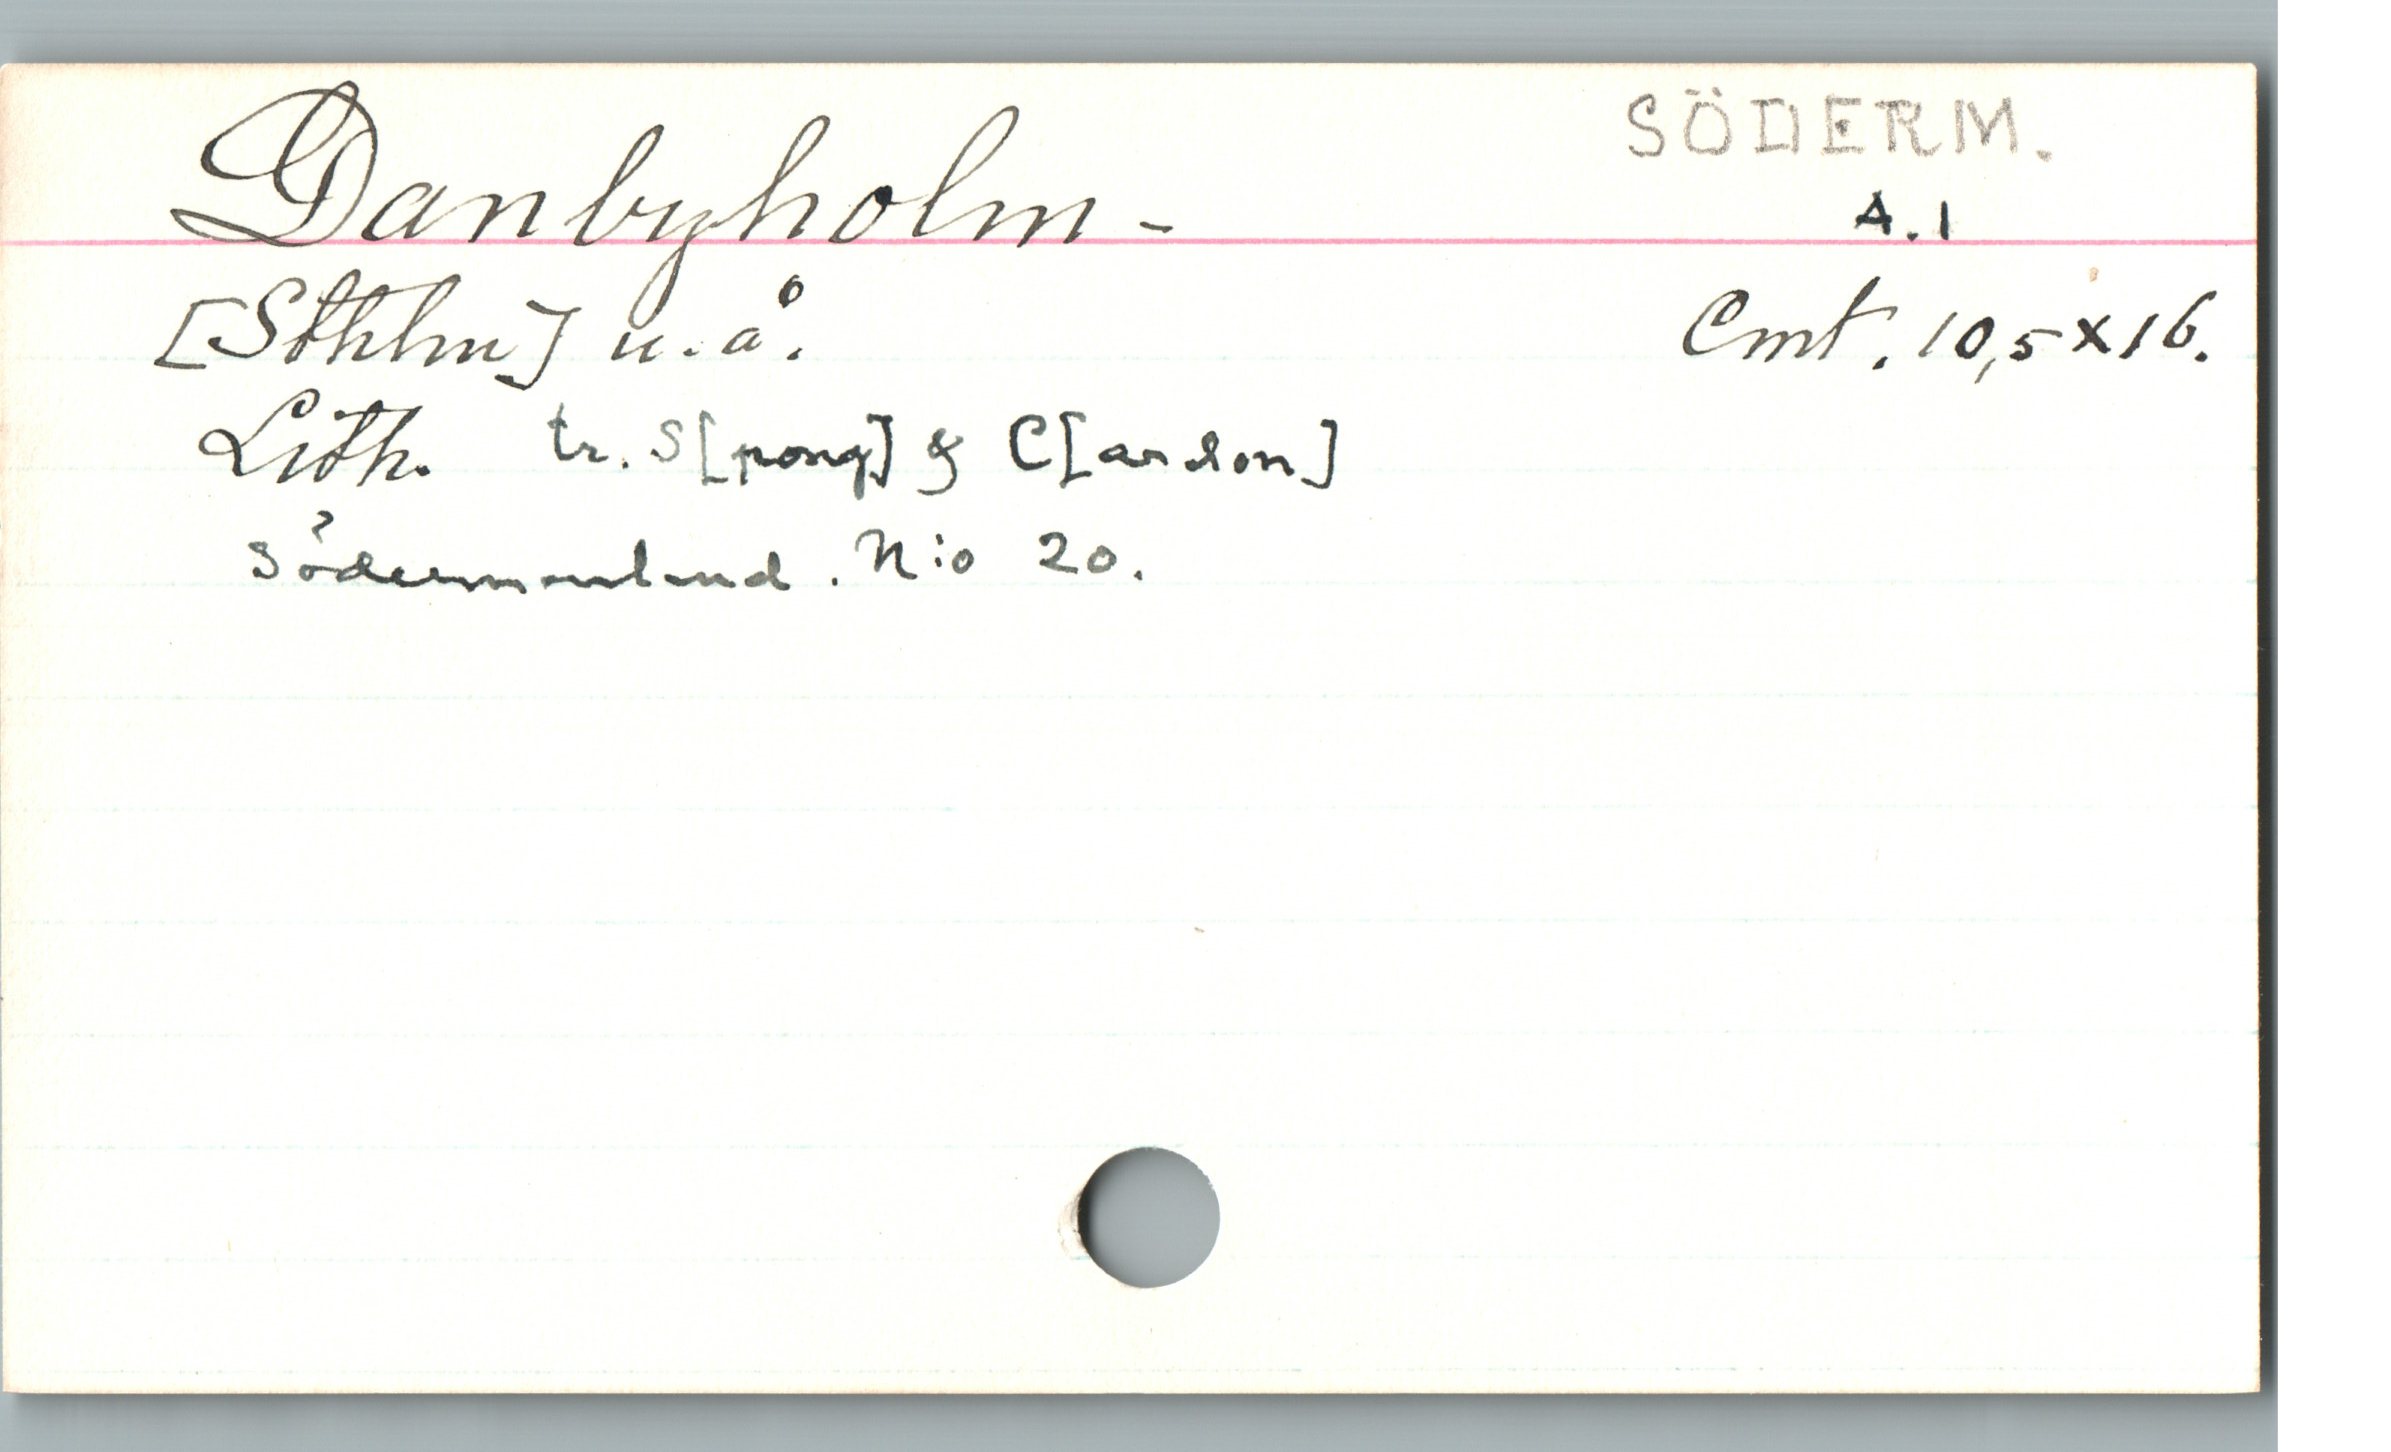 Danbyholm -
SÖDERM.
A.1
[Sthlm] u.å.
Cmt. 10,5 x 16.
Lith. tr. S[pong] & C[ardon]
Södermanland. N:o 20.